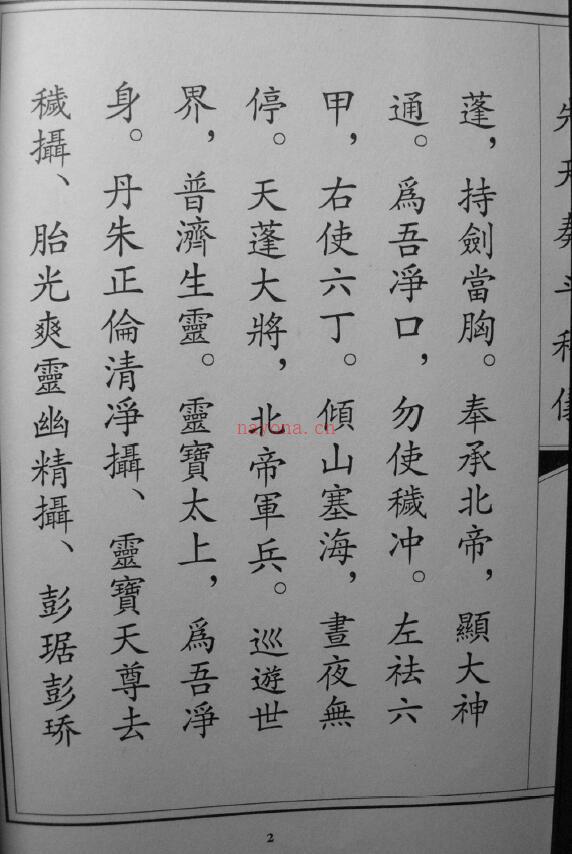 先天奏斗科儀
蓬，持劍當胸。奉承北帝，顯大神
通。爲吾淨口，勿使穢冲。左袪六
甲，右使六丁。傾山塞海，晝夜無
停。天蓬大將，北帝軍兵。巡遊世
界，普濟生靈。靈寶太上，爲吾淨
身。丹朱正倫清淨攝、靈寶天尊去
穢攝、胎光爽靈幽精攝、彭琚彭琦
nayona.cn
2